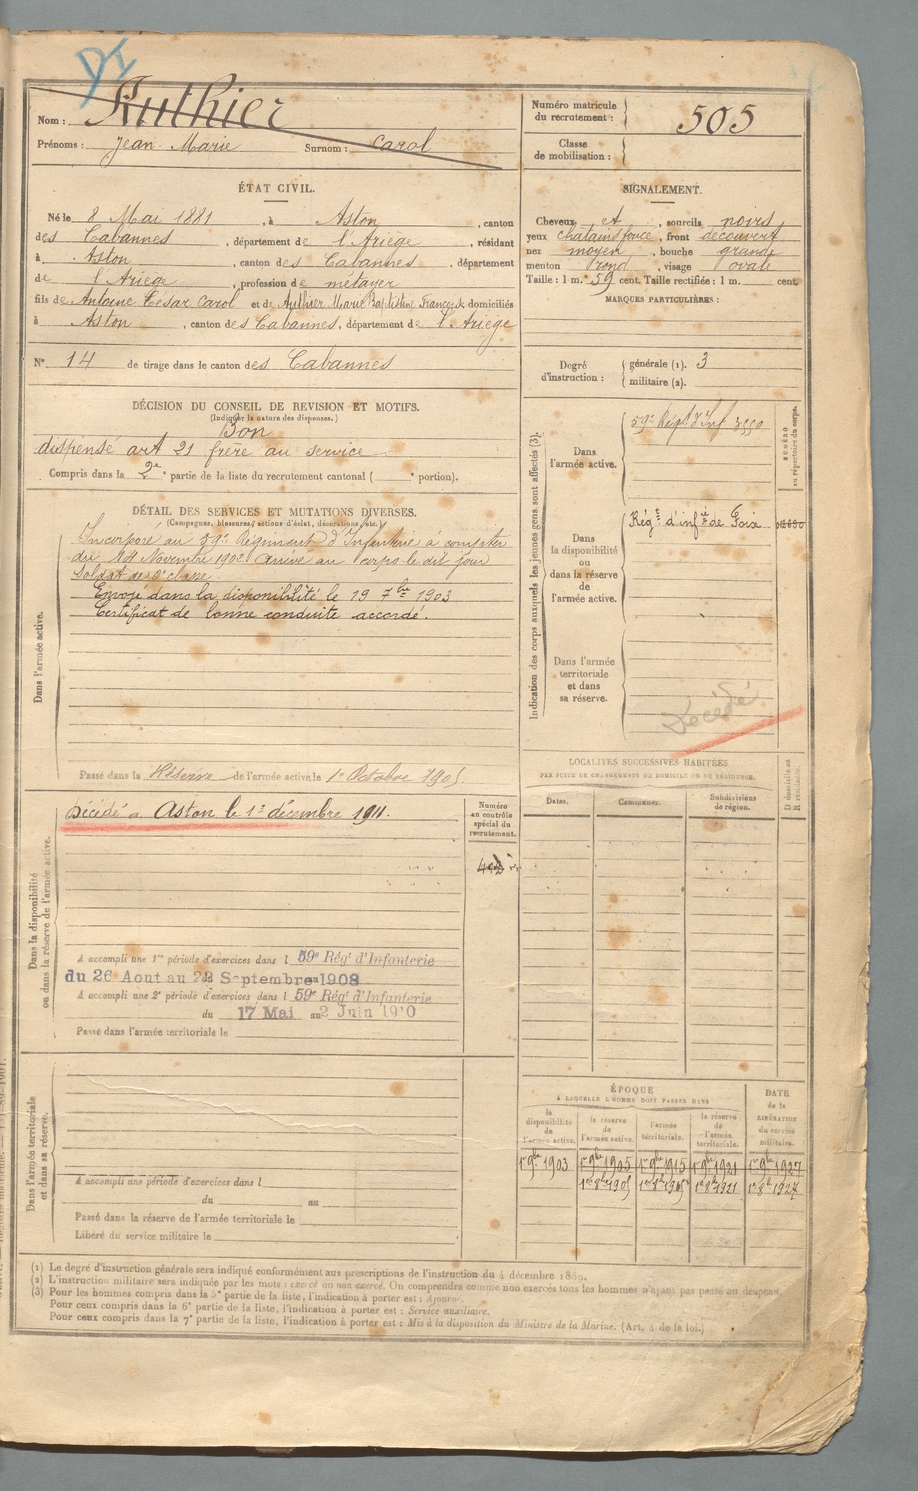 DI
Nom : Authier
Prénoms : Jean Marie Surnom : Carol
Numéro matricule du recrutement : 505
Classe de mobilisation :
ÉTAT CIVIL.
Né le 8 Mai 1881, à Aston, canton
des Cabannes, département de l'Ariège, résidant
à Aston, canton des Cabannes, département
de l'Ariège, profession de métayer
fils de Antoine César Carol et de Authier Marie Baptistine Françoise domiciliés
à Aston, canton des Cabannes, département de l'Ariège
SIGNALEMENT.
Cheveux et, sourcils noirs
yeux chatains foncé, front découvert
nez moyen, bouche grande
menton rond, visage ovale
Taille : 1 m. 59 cent. Taille rectifiée : 1 m. cent.
MARQUES PARTICULIÈRES :
N° 14 de tirage dans le canton des Cabannes
Degré d'instruction : générale (1). 3
militaire (2).
DÉCISION DU CONSEIL DE REVISION ET MOTIFS.
(Indiquer la nature des dispenses.)
Bon
dispensé art 21 frère au service
Compris dans la 2e partie de la liste du recrutement cantonal ( portion).
DÉTAIL DES SERVICES ET MUTATIONS DIVERSES.
(Campagnes, blessures, actions d'éclat, décorations, etc.)
Dans l'armée active.
Incorporé au 59e Régiment d'Infanterie à compter
du 14 Novembre 1902 Arrivé au corps le dit jour
Soldat de 2e classe.
Envoyé dans la disponibilité le 19 7bre 1903
Certificat de bonne conduite accordé.
Passé dans la Réserve de l'armée active le 1er Octobre 1905.
Indication des corps auxquels les jeunes gens sont affectés (3).
NUMÉRO au répertoire du corps.
Dans l'armée active.
59e Régt d'Inf 3550
Dans la disponibilité ou dans la réserve de l'armée active.
Régt d'infie de Foix
Dans l'armée territoriale et dans sa réserve.
Décédé
LOCALITÉS SUCCESSIVES HABITÉES
PAR SUITE DE CHANGEMENTS DE DOMICILE OU DE RÉSIDENCE.
Dates. Communes. Subdivisions de région. D domicile ou R résidence.
Dans la disponibilité ou dans la réserve de l'armée active.
Décédé à Aston le 1er décembre 1911.
Numéro au contrôle spécial du recrutement.
A accompli une 1re période d'exercices dans l 59e Régt d'Infanterie
du 26 Aout au 22 Septembre 1908
A accompli une 2e période d'exercices dans l 59e Régt d'Infanterie
du 17 Mai au 2 Juin 1910
Passé dans l'armée territoriale le
Dans l'armée territoriale et dans sa réserve.
A accompli une période d'exercices dans l
du au
Passé dans la réserve de l'armée territoriale le
Libéré du service militaire le
ÉPOQUE
À LAQUELLE L'HOMME DOIT PASSER DANS
la disponibilité de l'armée active. la réserve de l'armée active. l'armée territoriale. la réserve de l'armée territoriale. DATE de la LIBÉRATION du service militaire.
1er 9bre 1903 1er 9bre 1905 1er 9bre 1915 1er 9bre 1921 1er 9bre 1927
1er 8bre 1905 1er 8bre 1915 1er 8bre 1921 1er 8bre 1927
(1) Le degré d'instruction générale sera indiqué conformément aux prescriptions de l'instruction du 4 décembre 1889.
(2) L'instruction militaire sera indiquée par les mots : exercé ou non exercé. On comprendra comme non exercés tous les hommes n'ayant pas passé au drapeau.
(3) Pour les hommes compris dans la 5e partie de la liste, l'indication à porter est : Ajourné.
Pour ceux compris dans la 6e partie de la liste, l'indication à porter est : Service auxiliaire.
Pour ceux compris dans la 7e partie de la liste, l'indication à porter est : Mis à la disposition du Ministre de la Marine. (Art. 4 de la loi.)